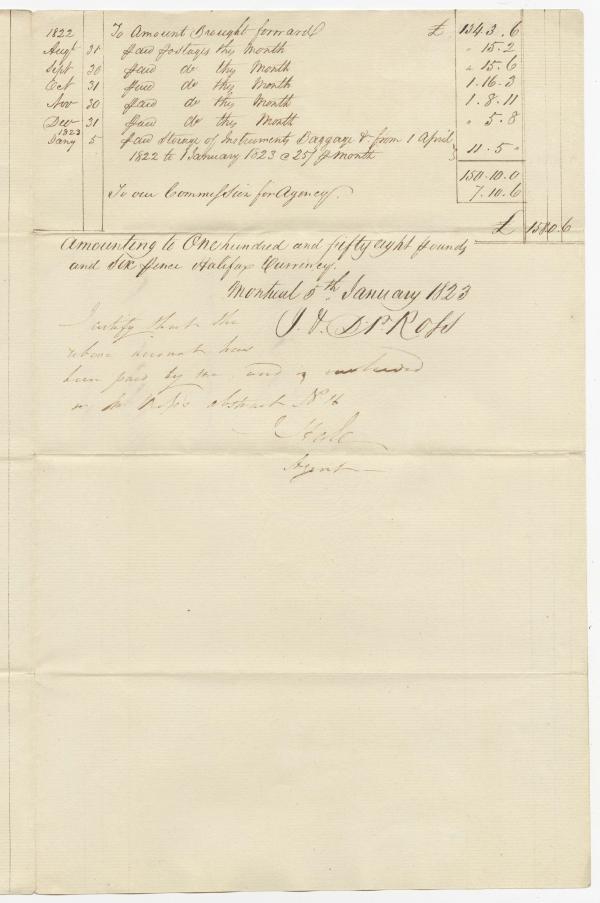 1822 To Amount Brought forward £ 134.3.6
Augt 31 paid postages this Month " 15.2
Sept 30 paid do this Month " 15.6
Oct 31 paid do this Month 1.16.3
Nov 30 paid do this Month 1.8.11
Dec 31 paid do this Month " 5.8
1823
Jany 5 paid Storage of Instruments Baggage &c from 1 April
1822 to 1 January 1823 @ 25/ p month 11.5 "
150.10.0
To our Commission for Agency. 7.10.6
£ 158 0.6
Amounting to One hundred and fifty eight pounds
and Six pence Halifax Currency.
Montreal 5th January 1823
J. & D P. Ross
I certify that the
above account has
been paid by me, and
abstract No 16
J Hale
Agent